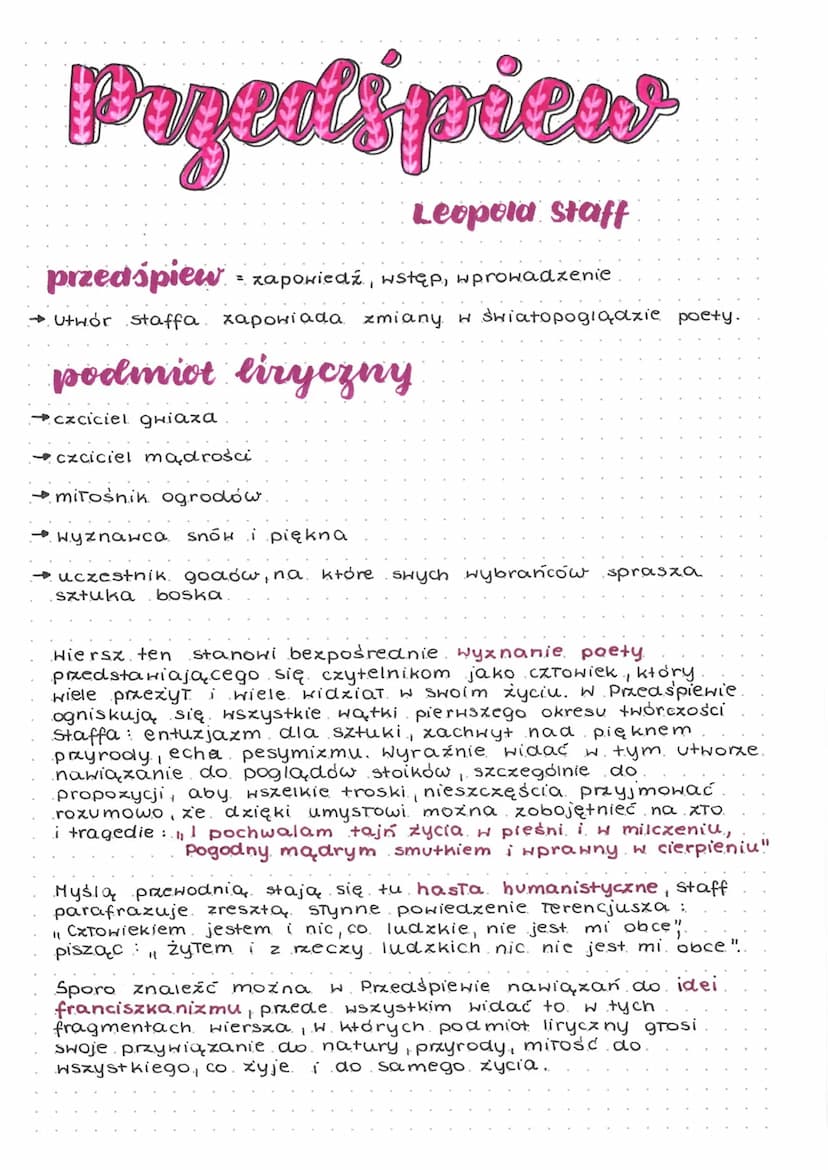 Przedśpiew
Leopold Staff
przedśpiew = zapowiedź, wstęp, wprowadzenie
→ utwór Staffa zapowiada zmiany w światopoglądzie poety.
podmiot liryczny
→ czciciel gwiazd
→ czciciel mądrości
→ miłośnik ogrodów
→ wyznawca snów i piękna
→ uczestnik godów, na które swych wybrańców sprasza
sztuka boska
Wiersz ten stanowi bezpośrednie wyznanie poety
przedstawiającego się czytelnikom jako człowiek, który
wiele przeżył i wiele widział w swoim życiu. W Przedśpiewie
ogniskują się wszystkie wątki pierwszego okresu twórczości
Staffa: entuzjazm dla sztuki, zachwyt nad pięknem
przyrody, echa pesymizmu. Wyraźnie widać w tym utworze
nawiązanie do poglądów stoików, szczególnie do
propozycji, aby wszelkie troski, nieszczęścia przyjmować
rozumowo, że dzięki umysłowi można zobojętnieć na zło
i tragedie: „I pochwalam tajń życia w pieśni i w milczeniu,
Pogodny mądrym smutkiem i wprawny w cierpieniu"
Myślą przewodnią stają się tu hasła humanistyczne, Staff
parafrazuje zresztą słynne powiedzenie Terencjusza:
„Człowiekiem jestem i nic, co ludzkie, nie jest mi obce",
pisząc: „żyłem i z rzeczy ludzkich nic nie jest mi obce".
Sporo znaleźć można w Przedśpiewie nawiązań do idei
franciszkanizmu, przede wszystkim widać to w tych
fragmentach wiersza, w których podmiot liryczny głosi
swoje przywiązanie do natury, przyrody, miłość do
wszystkiego, co żyje i do samego życia.